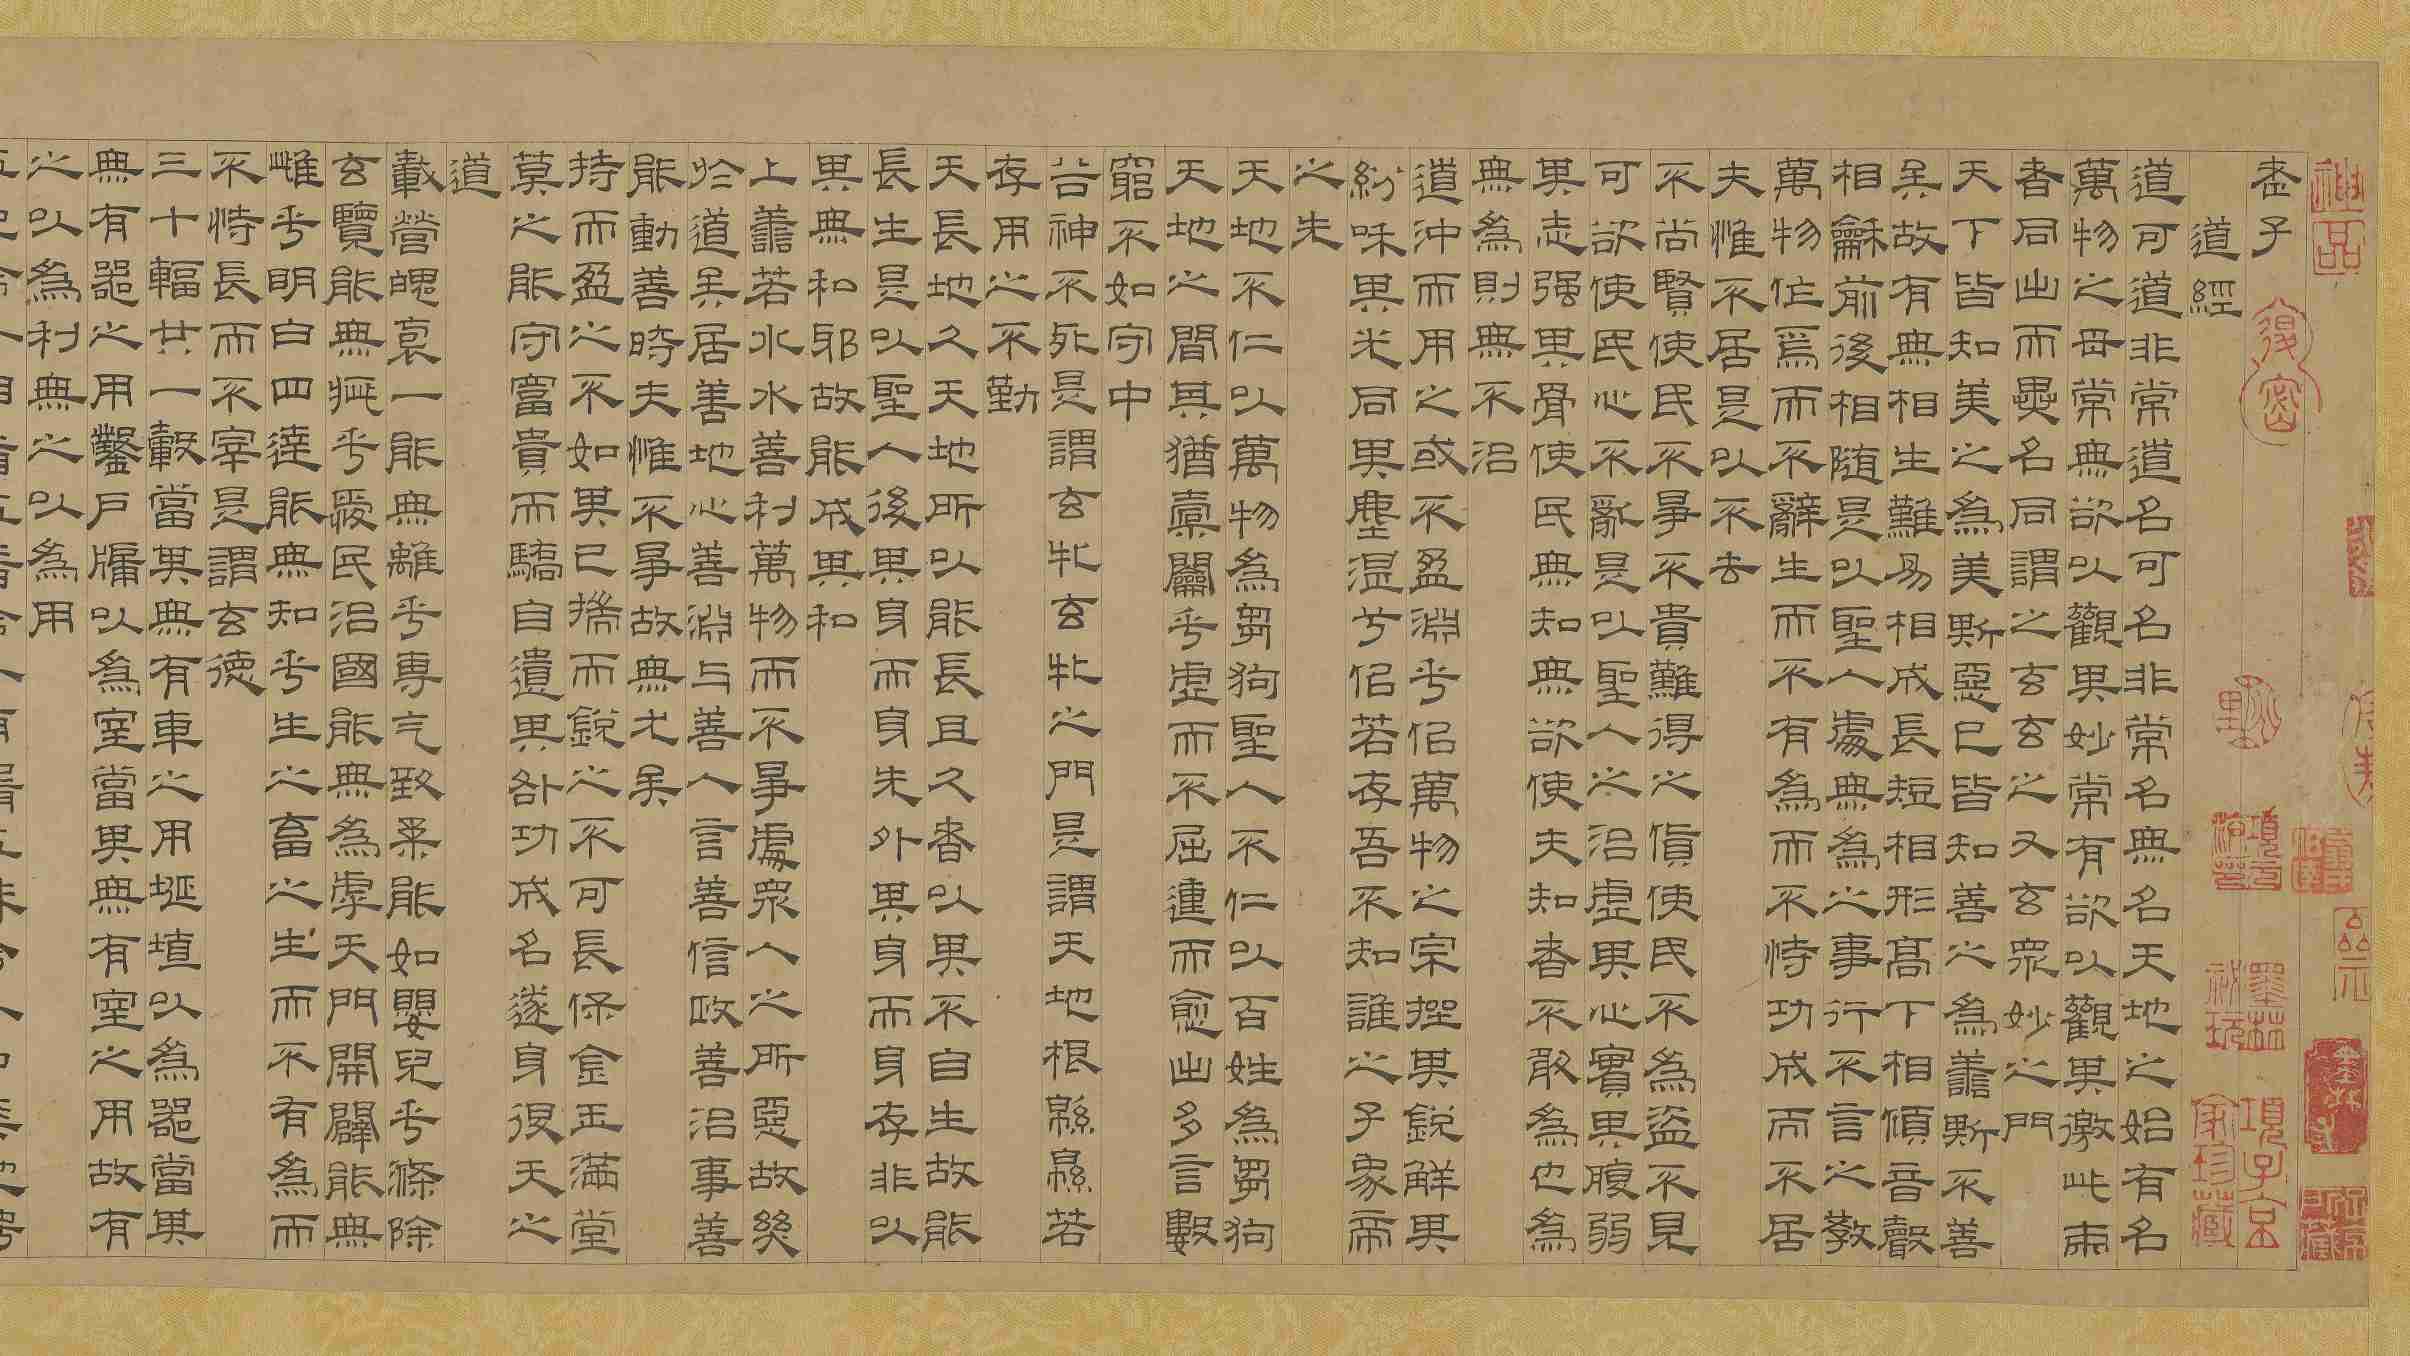 神品
老子
道經
道可道非常道名可名非常名無名天地之始有名
萬物之母常無欲以觀其妙常有欲以觀其徼此兩
者同出而異名同謂之玄玄之又玄衆妙之門
天下皆知美之為美斯惡已皆知善之為善斯不善
矣故有無相生難易相成長短相形高下相傾音聲
相龢前後相隨是以聖人處無為之事行不言之教
萬物作焉而不辭生而不有為而不恃功成而不居
夫惟不居是以不去
不尚賢使民不爭不貴難得之貨使民不為盜不見
可欲使民心不亂是以聖人之治虛其心實其腹弱
其志强其骨使民無知無欲使夫知者不敢為也為
無為則無不治
道沖而用之或不盈淵乎佀萬物之宗挫其銳解其
紛咊其光同其塵湛兮佀若存吾不知誰之子象帝
之先
天地不仁以萬物為芻狗聖人不仁以百姓為芻狗
天地之間其猶橐籥乎虛而不屈運而愈出多言數
窮不如守中
谷神不死是謂玄牝玄牝之門是謂天地根緜緜若
存用之不勤
天長地久天地所以能長且久者以其不自生故能
長生是以聖人後其身而身先外其身而身存非以
其無私邪故能成其私
上善若水水善利萬物而不爭處衆人之所惡故幾
於道矣居善地心善淵与善人言善信政善治事善
能動善時夫惟不爭故無尤矣
持而盈之不如其已揣而銳之不可長保金玉滿堂
莫之能守富貴而驕自遺其咎功成名遂身退天之
道
載營魄裒一能無離乎專气致柔能如嬰兒乎滌除
玄覽能無疵乎愛民治國能無為乎天門開闔能無
雌乎明白四達能無知乎生之畜之生而不有為而
不恃長而不宰是謂玄德
三十輻共一轂當其無有車之用埏埴以為器當其
無有器之用鑿戶牖以為室當其無有室之用故有
之以為利無之以為用
墨林祕玩
項子京家珍藏